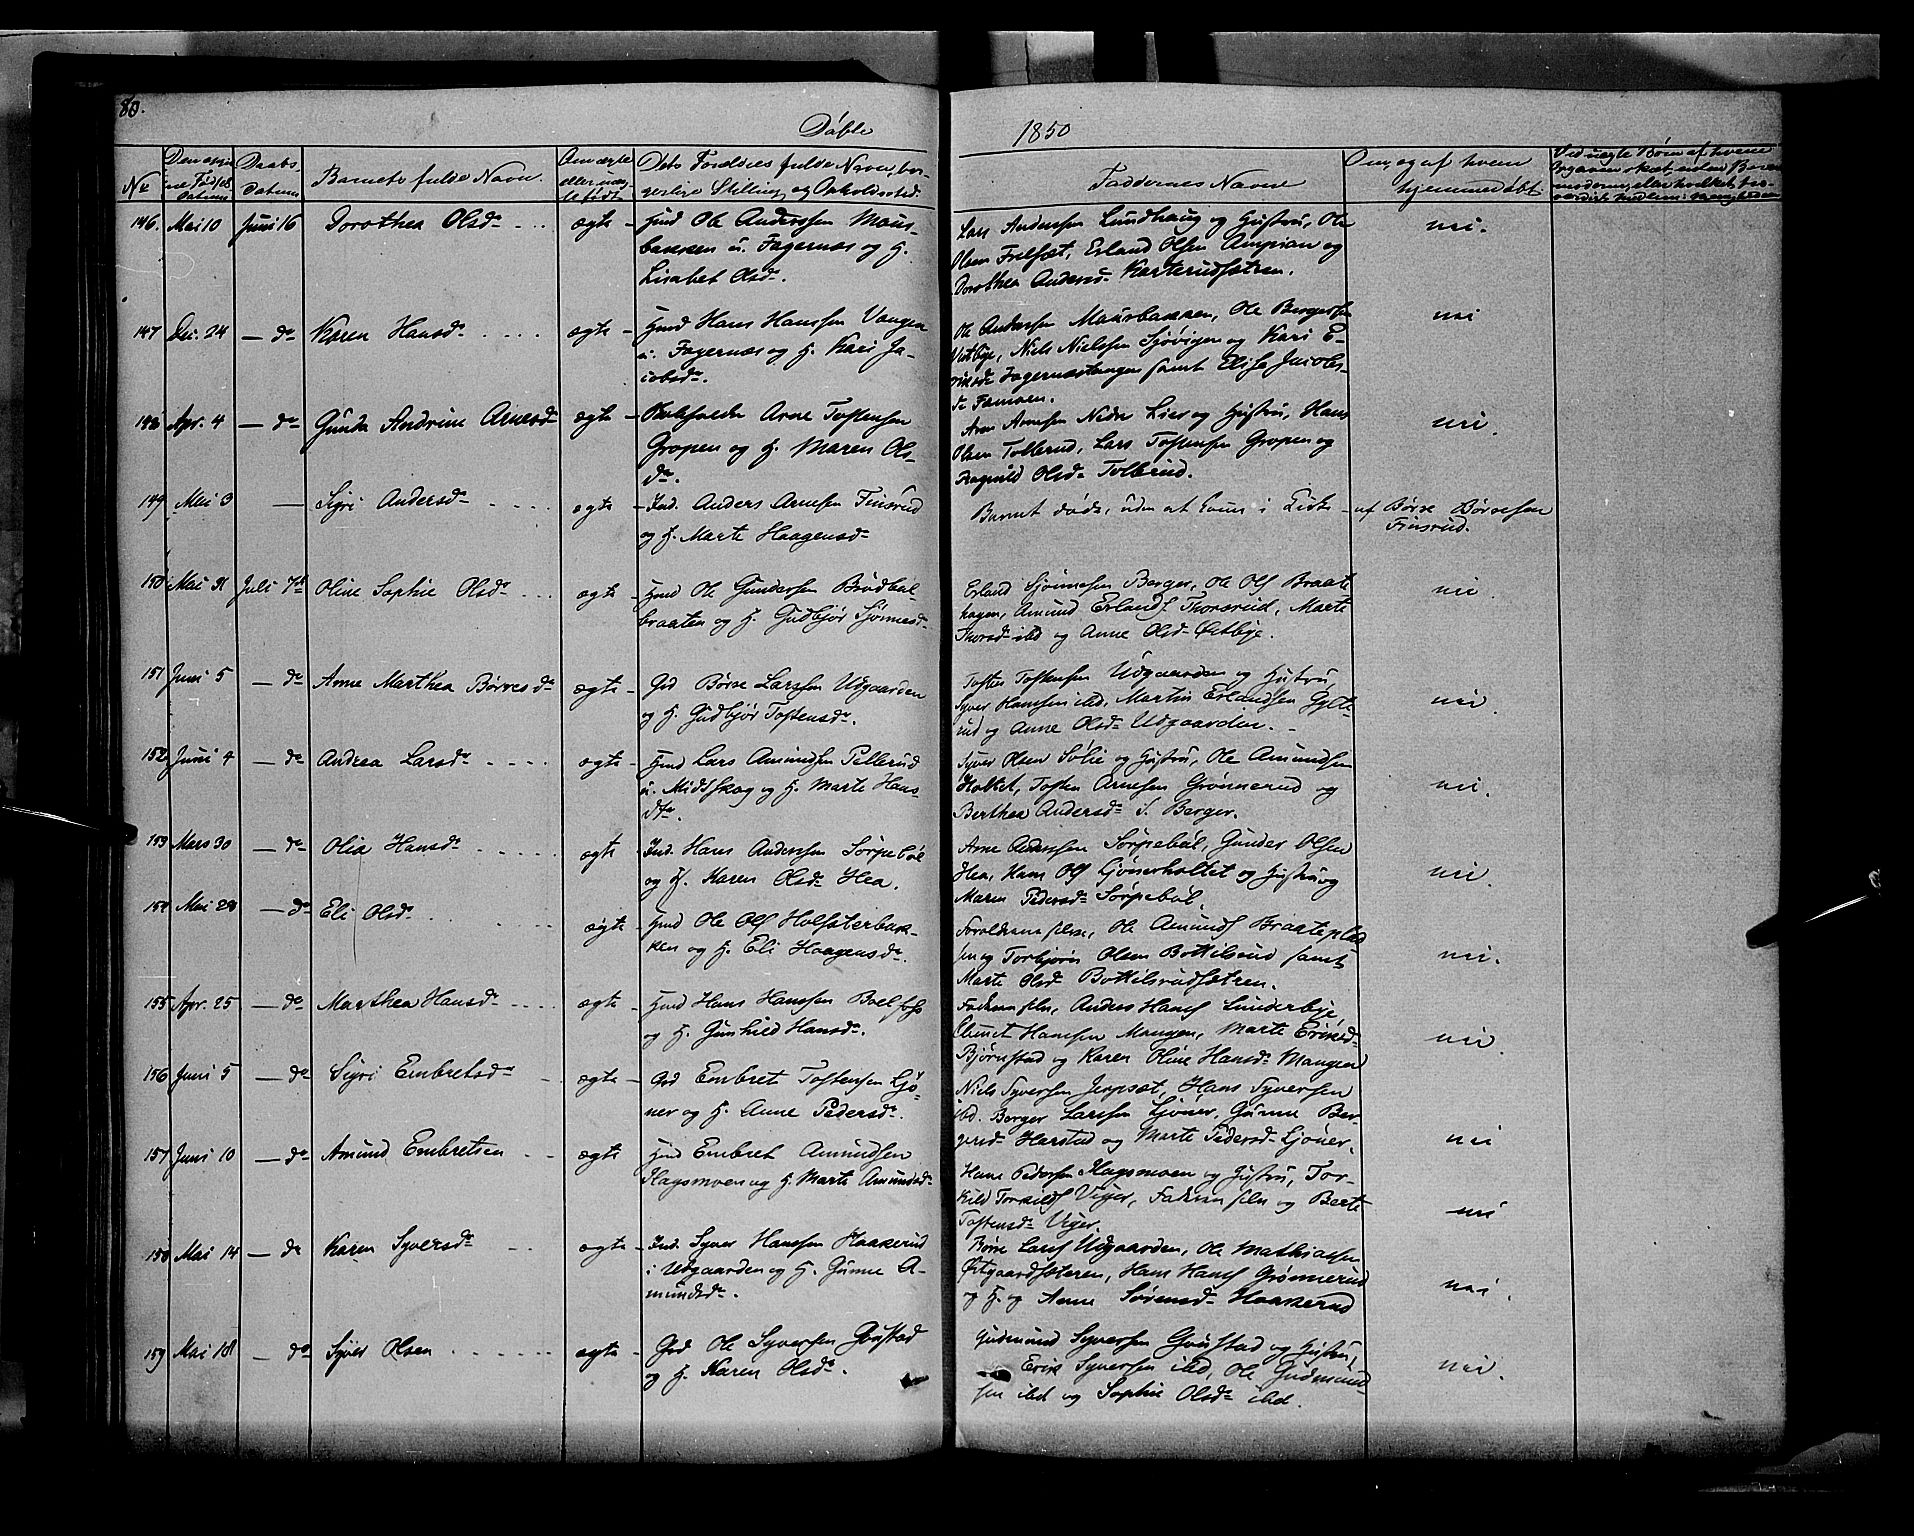 80.
Døbte
1850
No
Daabs
Datum
Barnets fulde Navn.
Dets Forældres fulde Navn, bor-
gerlige Stilling og Opholdssted.
Faddernes Navne
Om, og af hvem
hjemmedøbt
146. Mai 10 Juni 16 Dorothea Olsdr ægte
Hmd Ole Anderssen Maur-
bakken u. Fagernæs og H.
Lisabet Olsdr.
Lars Anderssen Lundhaug og Hustru, Ole
Olsen Frilsæt, Erland Olsen Ampian og
Dorothea Andersd Karterudsætren.
nei.
147 Dec. 24 — do Karen Hansdr ægte
Hmd Hans Hanssen Vangen
u. Fagernæs og H. Kari Ja-
cobsdr.
Ole Anderssen Maurbakken, Ole Bergersen
Vestbye, Niels Nielssen Sjøvigen og Kari E-
riksdr Fagernæstangen samt Elise Jacobs-
dr Famoen.
nei
148 Apr. 4 — do Gunda Andrine Arnesdr ægte
Arne Tostensen
Gropen og H. Maren Ols-
dr.
Arne Arnesen Nedre Lier og Hustru, Hans
Olsen Tolbrud, Lars Tostensen Gropen og
Ragnild Olsdr Tolbrud.
nei.
149 Mai 3 — Sigri Andersdr ægte
Ind. Anders Arnesen Finsrud
og H. Marte Haagensdr
Barnet døde, uden at komme i Kirke
af Børre Børresen
Finsrud.
150 Mai 31 Juli 7de Oline Sophie Olsdr ægte
Hmd Ole Gundersen Brødbøl
braaten og H. Gudbjør Sjønnesdr
Erland Sjønnesen Berger, Ole Ols Braate
hagen, Amund Erlands Thorsrud, Marte
Thorsdr ibd og Anne Olsdr Østbye.
nei.
151 Juni 5 — do Anne Marthea Børresdr ægte
Grd Børre Larssen Udgaarden
og H. Gudbjør Tostensdr.
Tosten Tostensen Udgaarden og Hustru
Syver Hanssen ibd, Martin Erlandsen Gylt-
rud og Anne Olsdr Udgaarden.
nei.
152 Juni 4 — do Andrea Larsdr ægte
Hmd Lars Amundsen Pellerud
u. Midtskog og H. Marte Hans-
dtr.
Syver Olsen Solie og Hustru, Ole Amundsen
Holtet, Tosten Arnesen Grønnerud og
Berthea Andersdr S. Berger.
nei.
153 Mars 30 — do Olia Hansdr ægte
Ind. Hans Anderssen Sørpebøl
og H. Karen Olsdr Hea.
Arne Anderssen Sørpebøl, Gunder Olsen
Hea, Hans Ols Ljønerholtet og Hustru og
Maren Pedersdr Sørpebøl.
nei.
154 Mai 28 — do Eli Olsdr ægte
Hmd Ole Ols Holsterbak-
ken og H. Eli Haagensdr.
Forældrene selve, Ole Amunds Braateplad
sen og Torbjørn Olsen Bottilsrud samt
Marte Olsd Bottilsrudsætren.
nei.
155 Apr. 25 — do Marthea Hansdr ægte
Hmd Hans Hanssen
og H. Gunhild Hansdr.
Faderen selv, Anders Hans Sunderbye,
Hanssen Mangen, Marte Eriksd
Bjørnstad og Karen Oline Hansdr Mangen
nei.
156 Juni 5 — do Sigri Embretsdr ægte
Grd Embret Tostensen Ljø-
ner og H. Anne Pedersdr.
Niels Syversen Jerpsæt, Hans Syversen
ibd. Berger Larssen Ljøner, Gunne Ber-
gersdr Harstad og Marte Pedersdr Ljøner.
nei
157 Juni 10 — do Amund Embretsen ægte
Hmd Embret Amundsen
Hagsmoen og H. Marte Amundsdr
Hans Pedersen Hagsmoen og Hustru, Tor-
kild Torkilds Viger, Faderen selv og Berte
Tostensdr Viger.
nei
158 Mai 14 — do Karen Syversdr ægte
Ind. Syver Hanssen Haakerud
i Udgaarden og H. Gunne A-
mundsdr.
Børre Lars Udgaarden, Ole Mathiassen
Østgaardsæteren, Hans Hans Grønnerud
og H. og Anne Sørensdr Haakerud
nei.
159 Mai 18 — do Syver Olsen ægte
Grd Ole Syversen Grustad
og H. Karen Olsdr.
Gudmund Syversen Grustad og Hustru,
Erik Syversen ibd, Ole Gudmund-
sen ibd og Sophie Olsdr ibd.
nei.